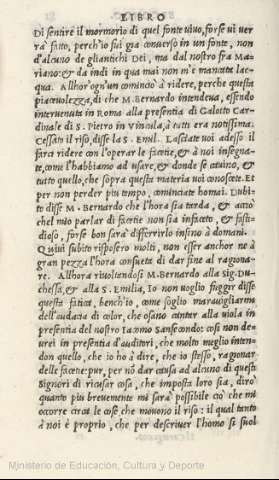 LIBRO
Di sentire il mormorio di quel fonte uiuo, forse ui uer
rà fatto, perch'io fui già conuerso in un fonte, non
d'alcuno de gliantichi Dei, ma dal nostro fra Ma
riano: & da indi in qua mai non m'è mancata lac
qua. Allhor ogn'un cominciò à ridere, perche questa
piaceuolezza, di che M. Bernardo intendeua, essendo
interuenuta in Roma alla presentia di Galotto Car
dinale di S. Pietro in Vincula, à tutti era notissima.
Cessato il riso, disse la S. Emil. Lasciate uoi adesso il
farci ridere con l'operar le facetie, & à noi insegna-
te, come l'habbiamo ad usare, & donde se cauino, &
tutto quello, che sopra questa materia uoi conoscete. Et
per non perder piu tempo, cominciate homai. Dubi-
to disse M. Bernardo che l'hora sia tarda, & acciò
chel mio parlar di facetie non sia infaceto, & fasti-
dioso, forse bon sarà differirlo insino à domani.
Quiui subito risposero molti, non esser anchor ne à
gran pezza l'hora consueta di dar fine al ragiona-
re. Allhora riuoltandosi M. Bernardo alla Sig. Du-
chessa, & alla S. Emilia, Io non uoglio fuggir disse
questa fatica, bench'io, come soglio marauigliarmi
dell'audacia di color, che osano cantar alla uiola in
presentia del nostro Iacomo Sansecondo: cosi non de-
urei in presentia d'auditori, che molto meglio inten-
don quello, che io hò à dire, che io stesso, ragionar
delle facetie: pur, per nō dar causa ad alcuno di questi
Signori di ricusar cosa, che imposta loro sia, dirò
quanto piu breuemente mi sarà possibile ciò che mi
occorre circa le cose che mouono il riso: il qual tanto
à noi è proprio, che per descriuer l'homo si suol
Ministerio de Educación, Cultura y Deporte